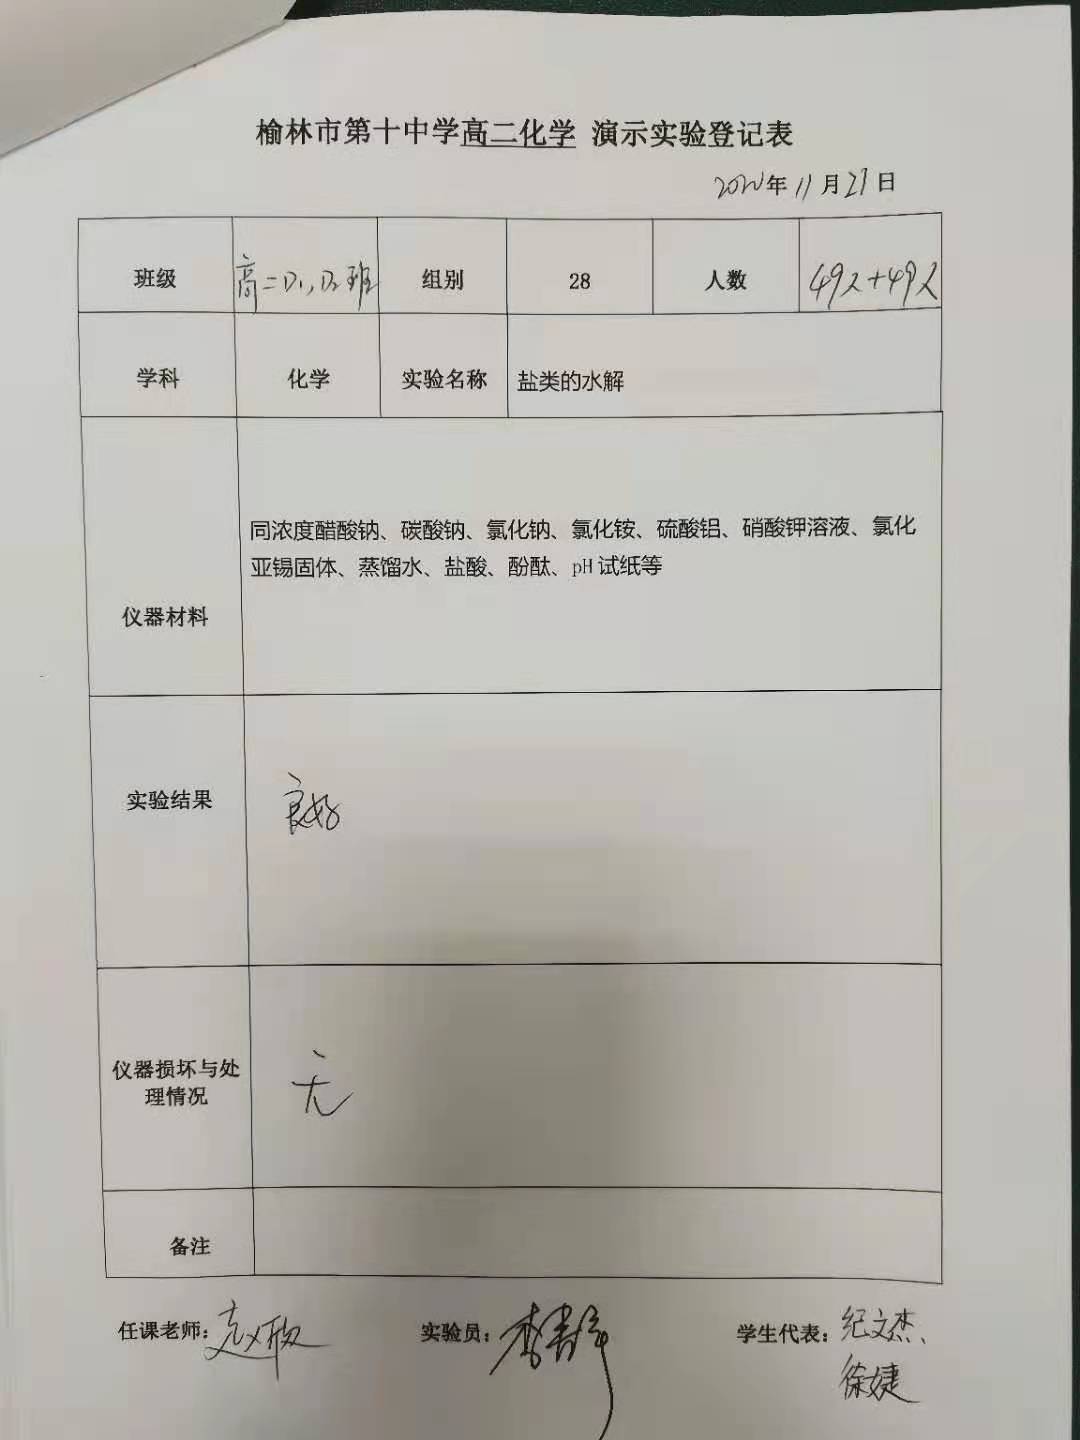 榆林市第十中学高二化学 演示实验登记表
年11月27日
班级 高二D1,D2班 组别 28 人数 49人+49人
学科 化学 实验名称 盐类的水解
同浓度醋酸钠、碳酸钠、氯化钠、氯化铵、硫酸铝、硝酸钾溶液、氯化
亚锡固体、蒸馏水、盐酸、酚酞、pH试纸等
仪器材料
实验结果 良好
仪器损坏与处
理情况
无
备注
任课老师:赵欣 实验员: 学生代表:纪文杰、
徐婕